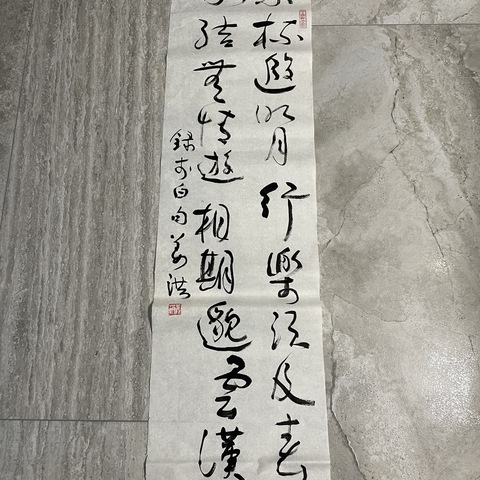 杯邀明月行樂須及春
結無情遊相期邈雲漢
錄李白句洪